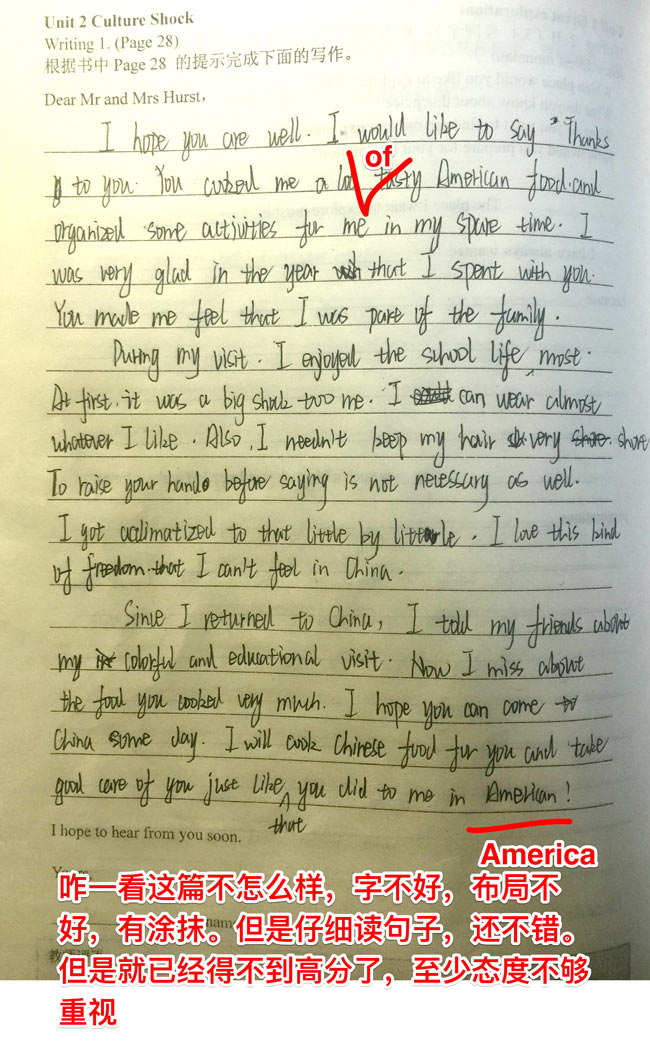 Unit 2 Culture Shock
Writing 1. (Page 28)
根据书中 Page 28 的提示完成下面的写作。
Dear Mr and Mrs Hurst,
I hope you are well. I would like to say "Thanks
to you. You cooked me a lot tasty American food and
of
organized some activities for me in my spare time. I
was very glad in the year that I spent with you.
You made me feel that I was pare of the family.
During my visit. I enjoyed the school life most.
At first, it was a big shock too me. I can wear almost
whatever I like. Also, I needn't keep my hair very shore
To raise your hand before saying is not necessary as well.
I got acclimatized to that little by little. I love this kind
of freedom that I can't feel in China.
Since I returned to China, I told my friends about
my colorful and educational visit. Now I miss about
the food you cooked very much. I hope you can come to
China some day. I will cook Chinese food for you and take
good care of you just like you did to me in American!
that
I hope to hear from you soon.
America
咋一看这篇不怎么样，字不好，布局不
好，有涂抹。但是仔细读句子，还不错。
但是就已经得不到高分了，至少态度不够
重视